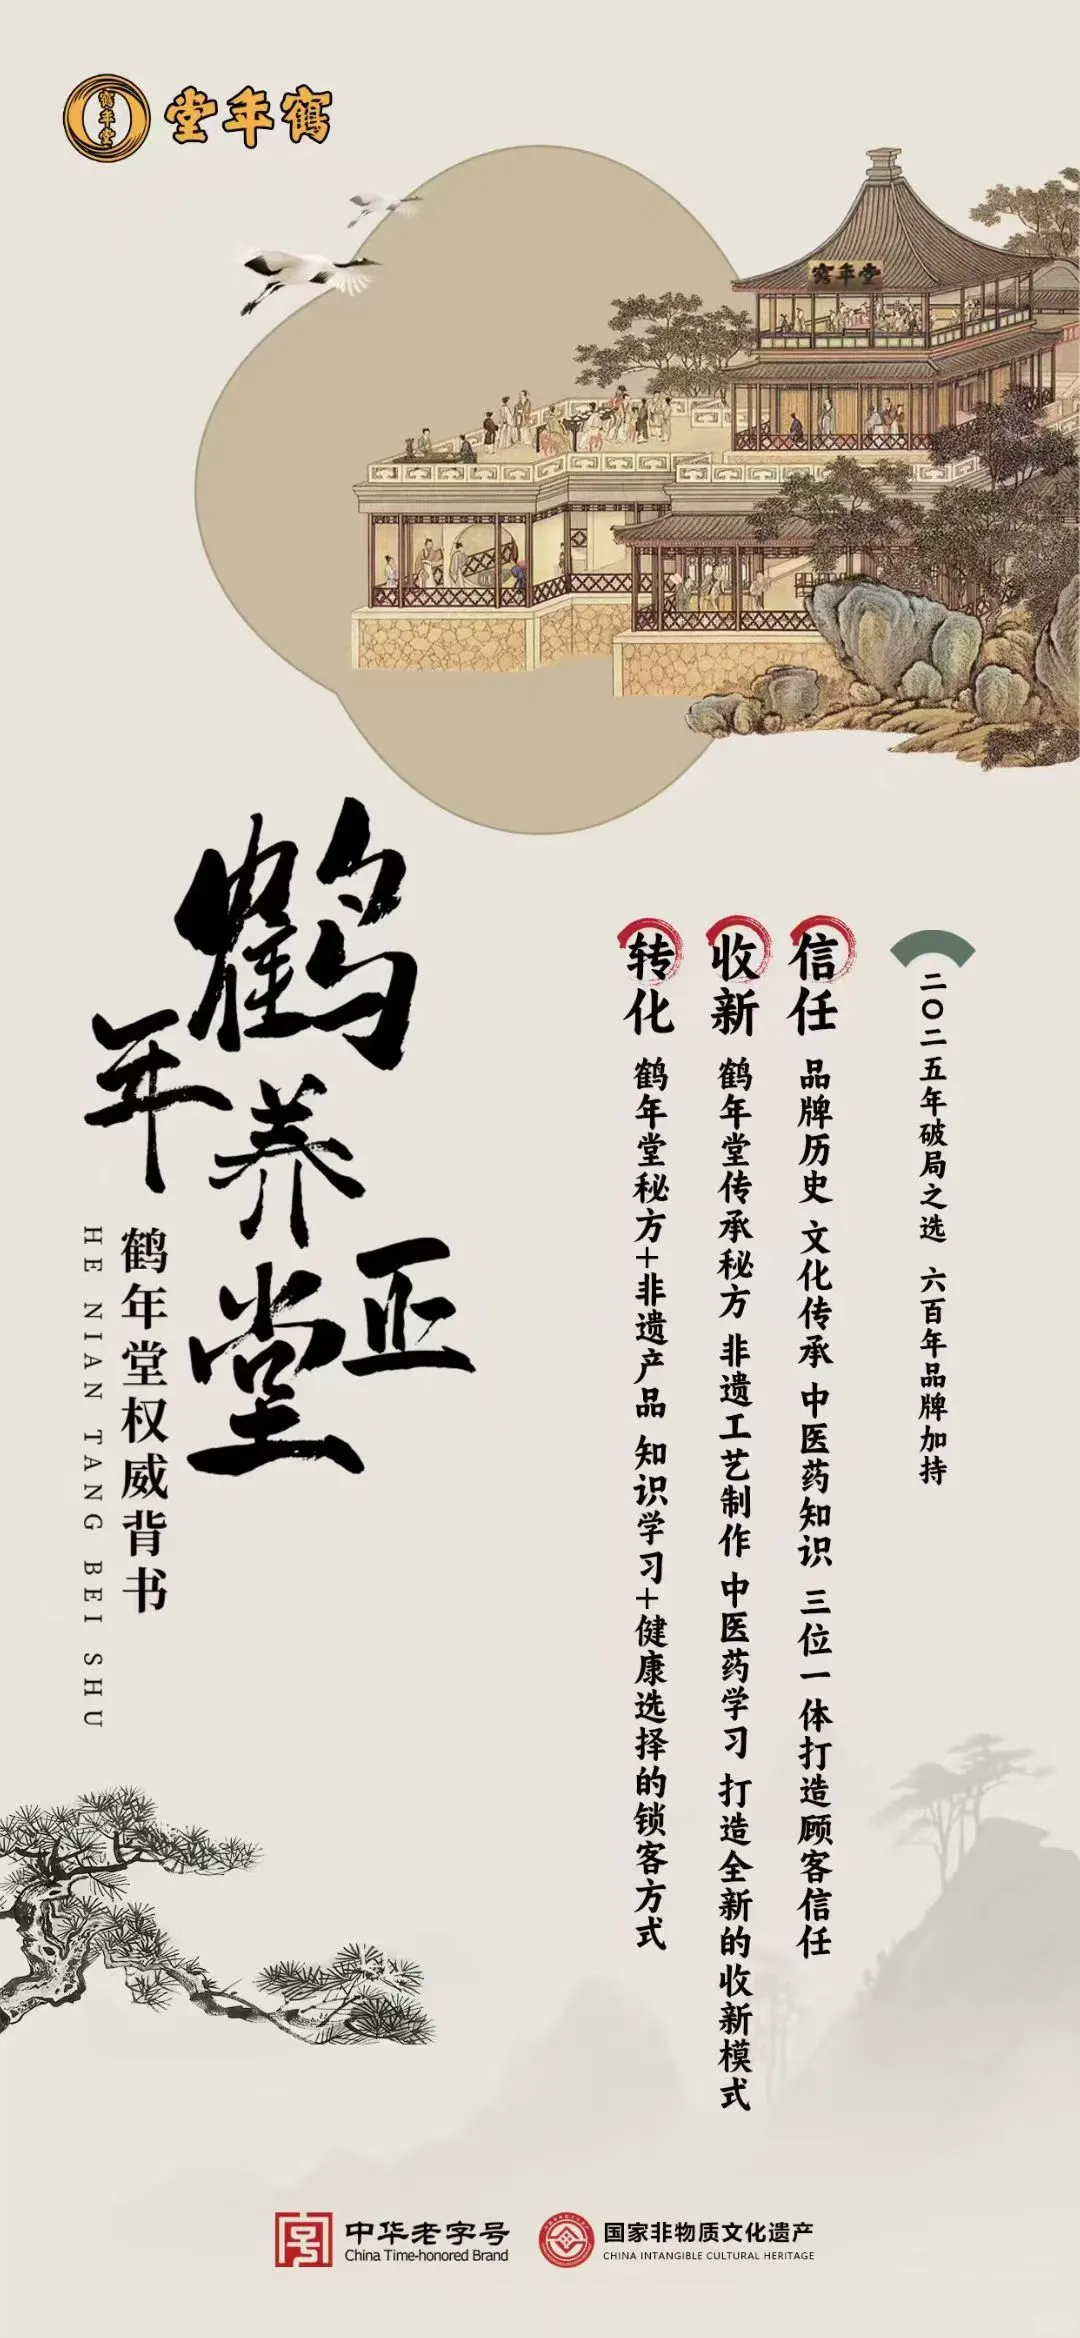 鶴年堂
鶴年堂
鶴年堂
鹤年堂
养正
鹤年堂权威背书
HE NIAN TANG BEI SHU
二〇二五年破局之选 六百年品牌加持
信任 品牌历史 文化传承 中医药知识 三位一体打造顾客信任
收新 鹤年堂传承秘方 非遗工艺制作 中医药学习 打造全新的收新模式
转化 鹤年堂秘方+非遗产品 知识学习+健康选择的锁客方式
中华老字号
China Time-honored Brand
国家非物质文化遗产
CHINA INTANGIBLE CULTURAL HERITAGE